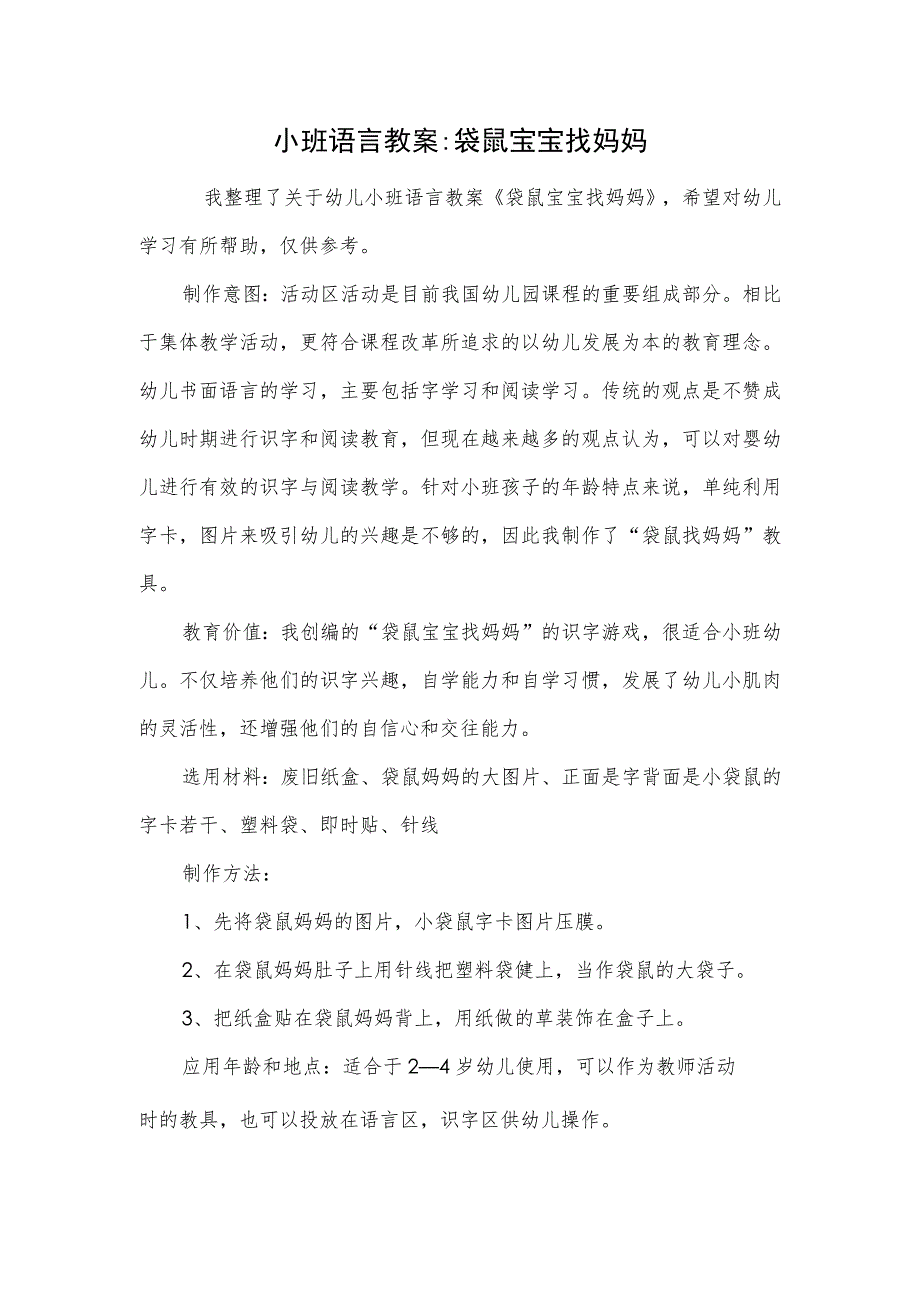 小班语言教案:袋鼠宝宝找妈妈
我整理了关于幼儿小班语言教案《袋鼠宝宝找妈妈》，希望对幼儿
学习有所帮助，仅供参考。
制作意图：活动区活动是目前我国幼儿园课程的重要组成部分。相比
于集体教学活动，更符合课程改革所追求的以幼儿发展为本的教育理念。
幼儿书面语言的学习，主要包括字学习和阅读学习。传统的观点是不赞成
幼儿时期进行识字和阅读教育，但现在越来越多的观点认为，可以对婴幼
儿进行有效的识字与阅读教学。针对小班孩子的年龄特点来说，单纯利用
字卡，图片来吸引幼儿的兴趣是不够的，因此我制作了“袋鼠找妈妈”教
具。
教育价值：我创编的“袋鼠宝宝找妈妈”的识字游戏，很适合小班幼
儿。不仅培养他们的识字兴趣，自学能力和自学习惯，发展了幼儿小肌肉
的灵活性，还增强他们的自信心和交往能力。
选用材料：废旧纸盒、袋鼠妈妈的大图片、正面是字背面是小袋鼠的
字卡若干、塑料袋、即时贴、针线
制作方法：
1、先将袋鼠妈妈的图片，小袋鼠字卡图片压膜。
2、在袋鼠妈妈肚子上用针线把塑料袋健上，当作袋鼠的大袋子。
3、把纸盒贴在袋鼠妈妈背上，用纸做的草装饰在盒子上。
应用年龄和地点：适合于2—4岁幼儿使用，可以作为教师活动
时的教具，也可以投放在语言区，识字区供幼儿操作。